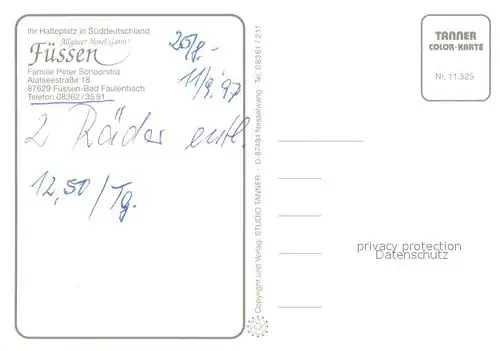 Ihr Halteplatz in Süddeutschland
Allgäuer Hotel garni
Füssen
Familie Peter Schoorstra
Alatseestraße 18
87629 Füssen-Bad Faulenbach
Telefon 08362/3551
2 Räder entl.
12,50/Tg.
Copyright und Verlag: STUDIO TANNER - D-87484 Nesselwang · Tel. 08361/211
TANNER
COLOR-KARTE
Nr. 11.525
privacy protection
Datenschutz